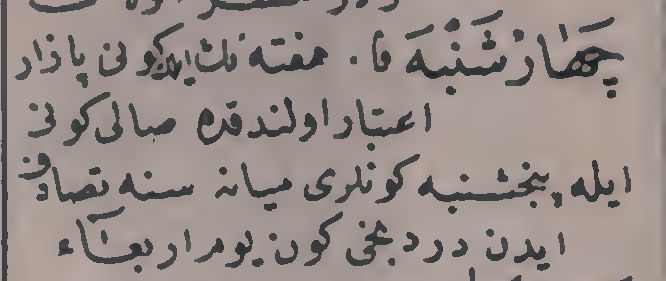 چَهَارْشَنْبَهَ فا. هفته نك ایلك كونی پازار
اعتبار اولندقده صالی كونی
ایله پنجشنبه كونلری میانه سنه تصادف
ایدن دردنجی كون یوم اربعآء